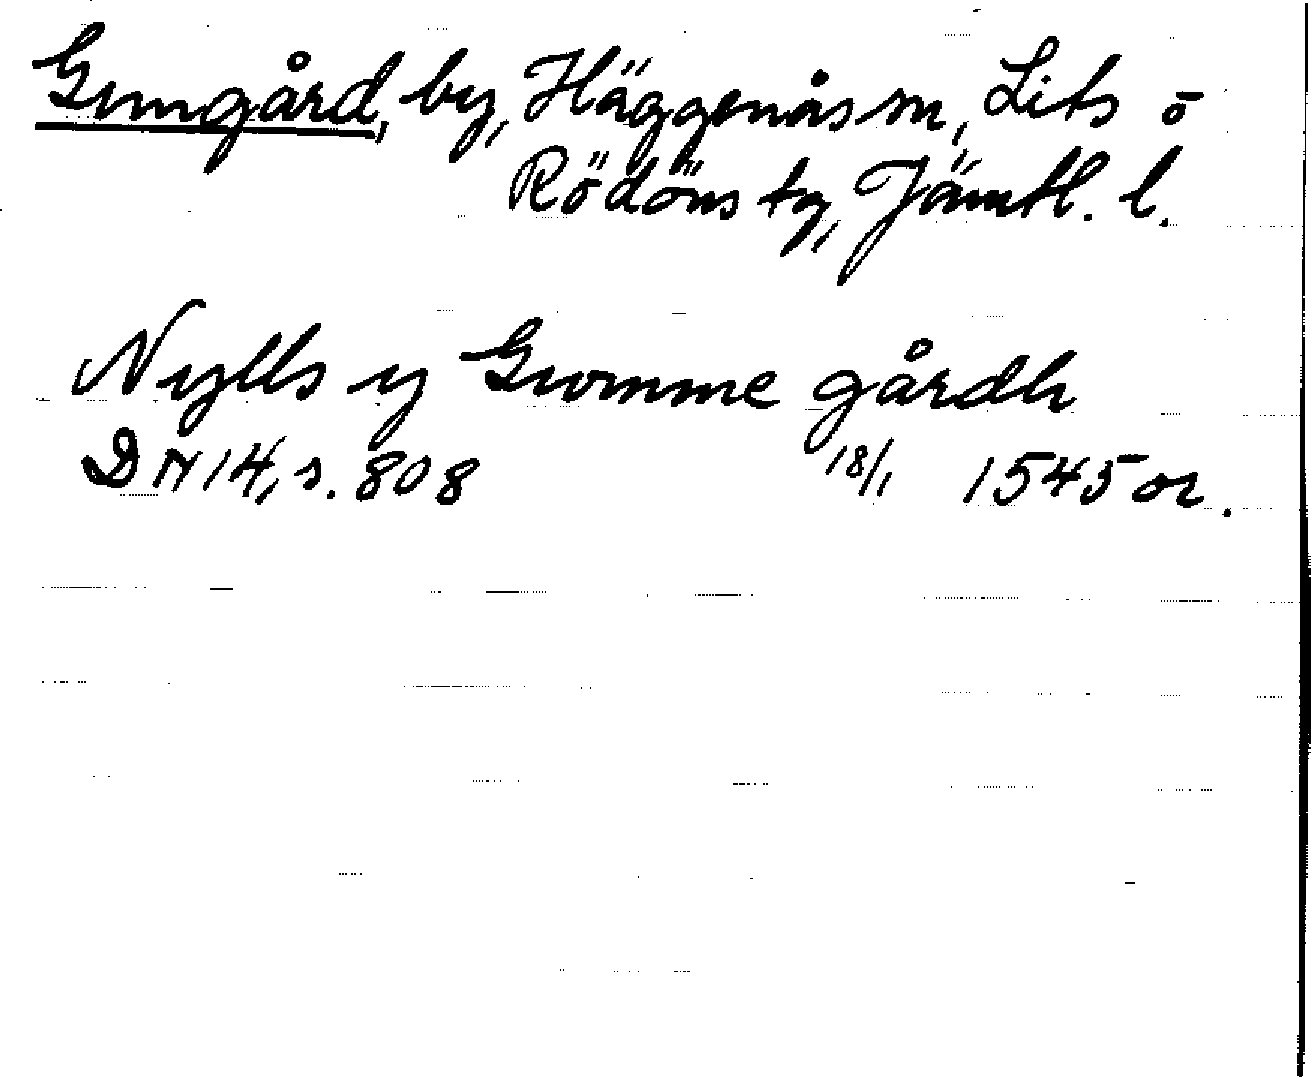 Gumgård, by, Häggenås sn, Lits o
Rödöns tg, Jämtl. l.
Nylls y Gwmme gårdh
DN 14, s. 808 18/1 1545 or.